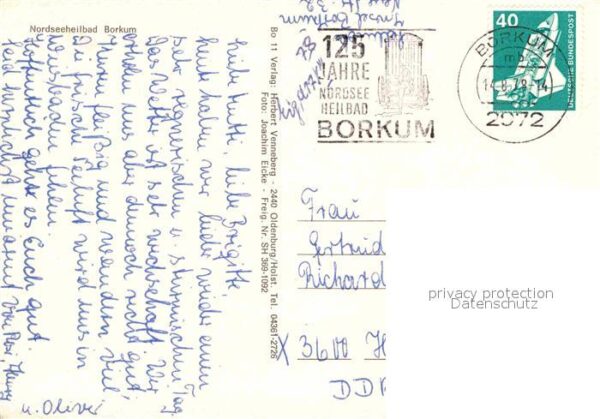 Nordseeheilbad Borkum
Liebe Mutti, liebe Brigitte,
heute haben wir leider wieder einen
sehr regnerischen u. stürmischen Tag.
Das Wetter ist sehr wechselhaft. Wir
erholen uns aber dennoch recht gut.
Immer fleißig und wandern viel
Die frische Seeluft wird uns in
fehlen.
Hoffentlich geht es Euch gut
Seid herzlichst umarmt von
u. Oliver
Bo 11 Verlag: Herbert Venneberg - 2440 Oldenburg/Holst. Tel. 04361-2726
Foto: Joachim Eicke - Freig. Nr. SH 369-1092
125
JAHRE
NORDSEE
HEILBAD
BORKUM
BORKUM
mb
2972
40
DEUTSCHE BUNDESPOST
Frau
Gertrud
Richard
X 3600 H
DD
privacy protection
Datenschutz